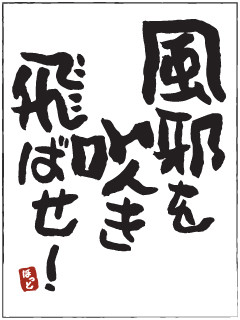 風邪を
吹き
飛ばせ！
ほっと